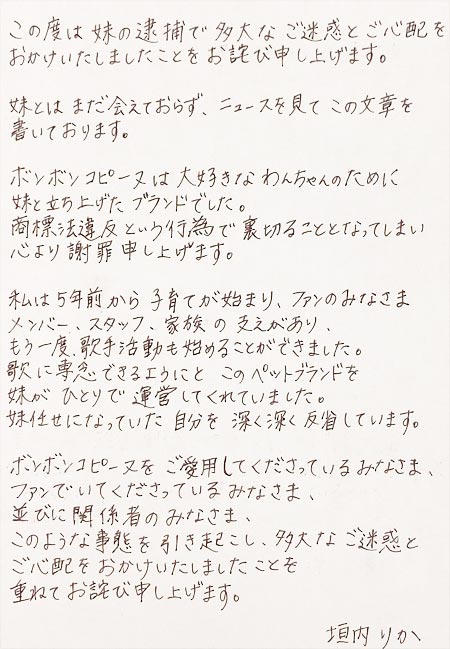 この度は妹の逮捕で多大なご迷惑とご心配を
おかけいたしましたことをお詫び申し上げます。
妹とはまだ会えておらず、ニュースを見てこの文章を
書いております。
ボンボンコピーヌは大好きなわんちゃんのために
妹と立ち上げたブランドでした。
商標法違反という行為で裏切ることとなってしまい
心より謝罪申し上げます。
私は5年前から子育てが始まり、ファンのみなさま
メンバー、スタッフ、家族の支えがあり、
もう一度、歌手活動も始めることができました。
歌に専念できるようにとこのペットブランドを
妹がひとりで運営してくれていました。
妹任せになっていた自分を深く深く反省しています。
ボンボンコピーヌをご愛用してくださっているみなさま、
ファンでいてくださっているみなさま、
並びに関係者のみなさま、
このような事態を引き起こし、多大なご迷惑と
ご心配をおかけいたしましたことを
重ねてお詫び申し上げます。
垣内りか